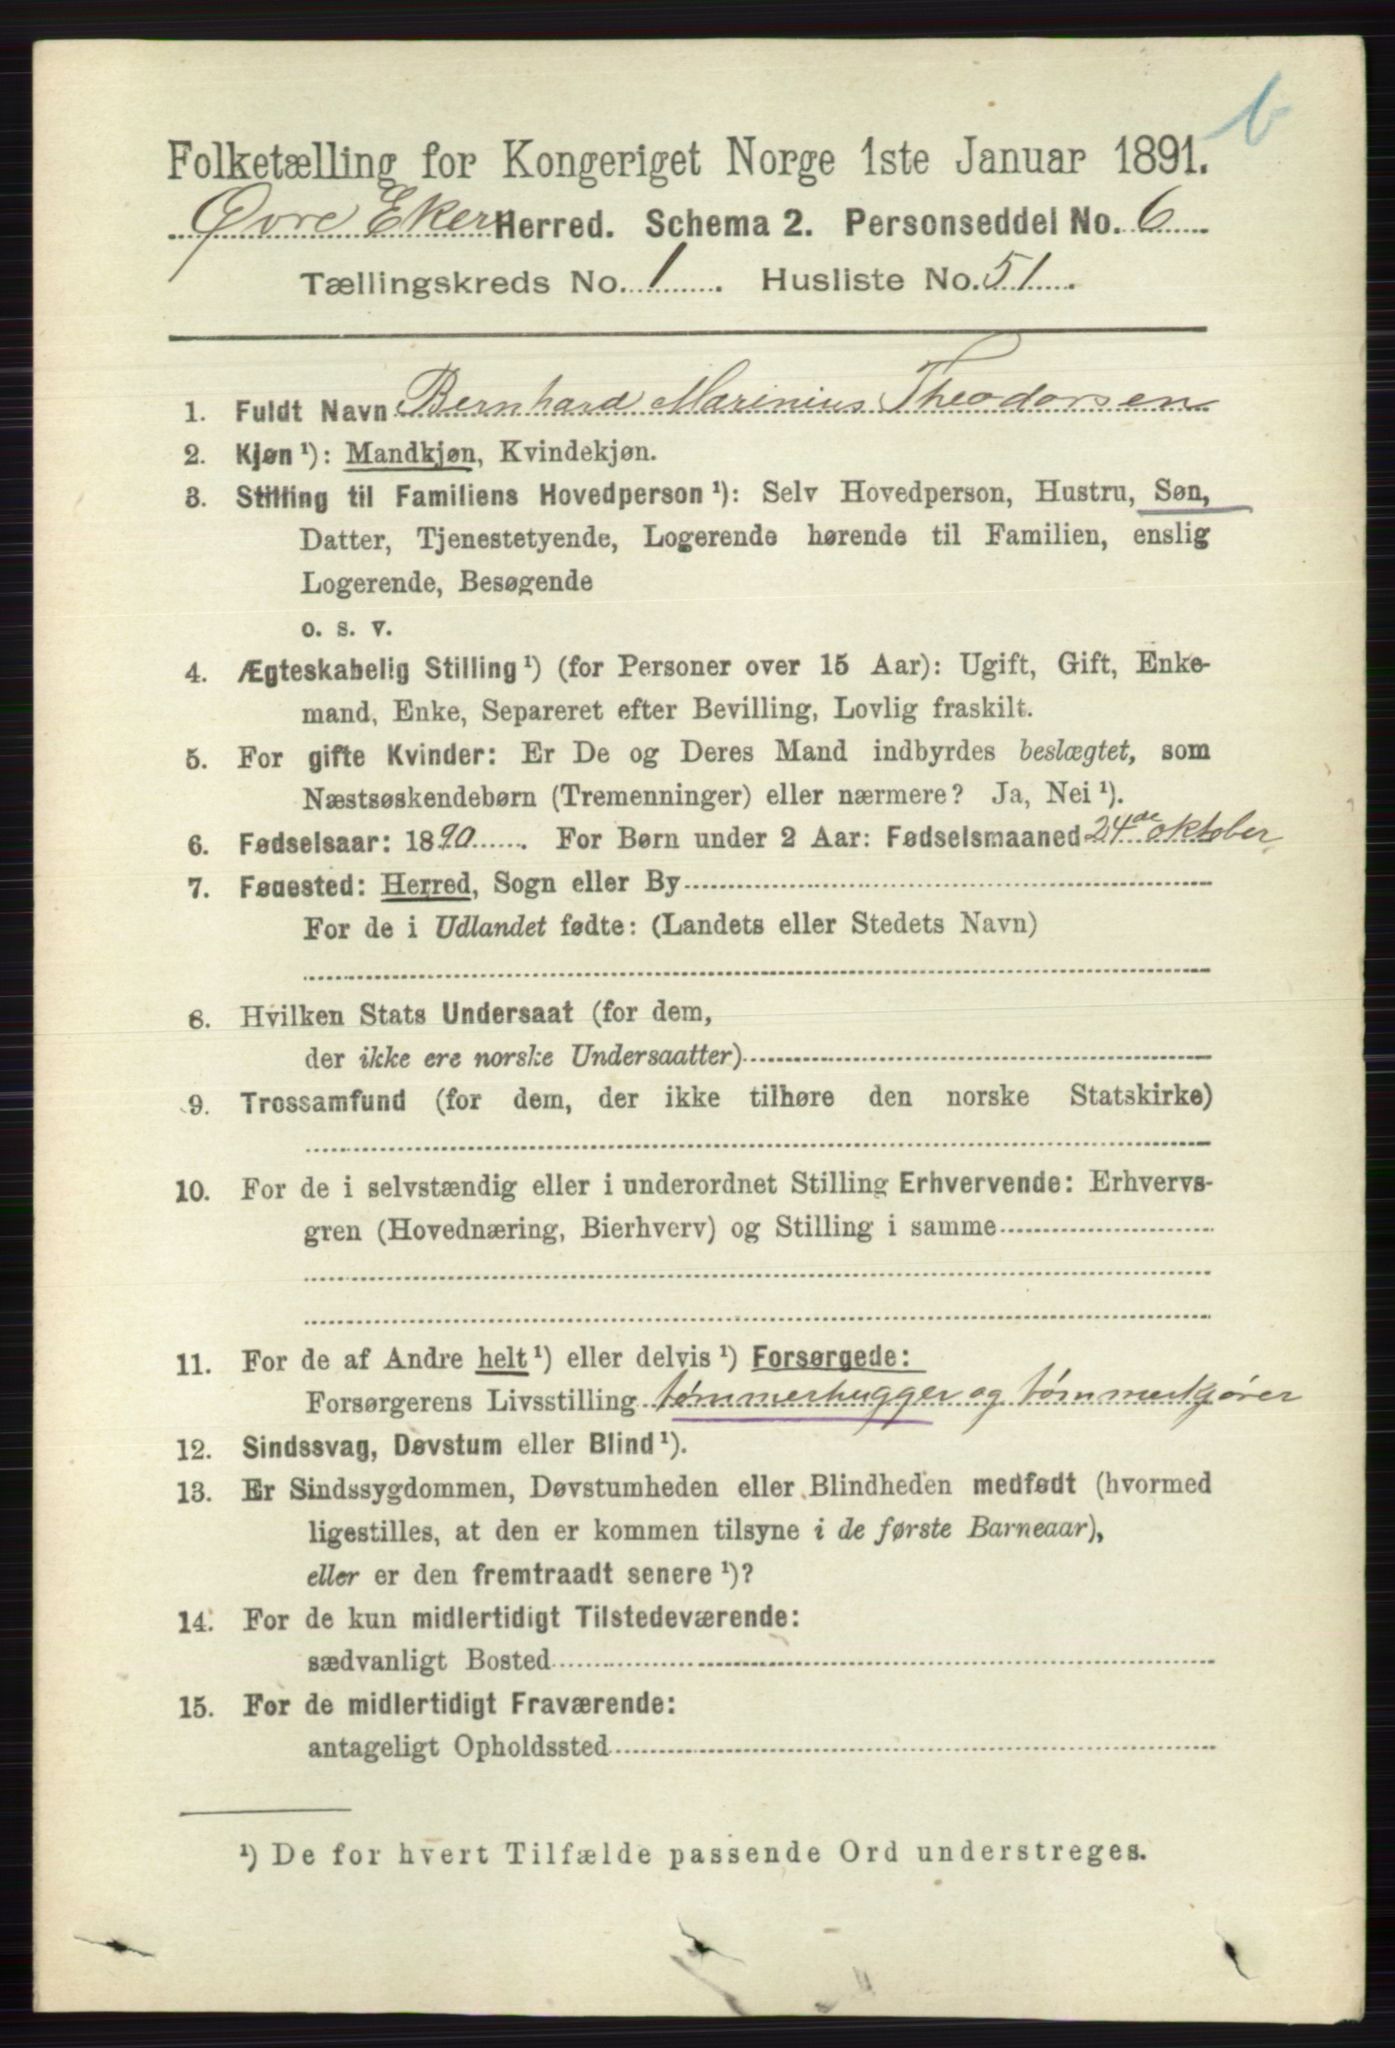 b
Folketælling for Kongeriget Norge 1ste Januar 1891.
Øvre Eker Herred. Schema 2. Personseddel No. 6
Tællingskreds No. 1. Husliste No. 51.
1. Fuldt Navn Bernhard Marinius Theodorsen
2. Kjøn ¹): Mandkjøn, Kvindekjøn.
3. Stilling til Familiens Hovedperson ¹): Selv Hovedperson, Hustru, Søn,
Datter, Tjenestetyende, Logerende hørende til Familien, enslig
Logerende, Besøgende
o. s. v.
4. Ægteskabelig Stilling ¹) (for Personer over 15 Aar): Ugift, Gift, Enke-
mand, Enke, Separeret efter Bevilling, Lovlig fraskilt.
5. For gifte Kvinder: Er De og Deres Mand indbyrdes beslægtet, som
Næstsøskendebørn (Tremenninger) eller nærmere? Ja, Nei ¹).
6. Fødselsaar: 1890. For Børn under 2 Aar: Fødselsmaaned 24de oktober
7. Fødested: Herred, Sogn eller By
For de i Udlandet fødte: (Landets eller Stedets Navn)
8. Hvilken Stats Undersaat (for dem,
der ikke ere norske Undersaatter)
9. Trossamfund (for dem, der ikke tilhøre den norske Statskirke)
10. For de i selvstændig eller i underordnet Stilling Erhvervende: Erhvervs-
gren (Hovednæring, Bierhverv) og Stilling i samme
11. For de af Andre helt ¹) eller delvis ¹) Forsørgede:
Forsørgerens Livsstilling tømmerhugger og tømmerkjører
12. Sindssvag, Døvstum eller Blind ¹).
13. Er Sindssygdommen, Døvstumheden eller Blindheden medfødt (hvormed
ligestilles, at den er kommen tilsyne i de første Barneaar),
eller er den fremtraadt senere ¹)?
14. For de kun midlertidigt Tilstedeværende:
sædvanligt Bosted
15. For de midlertidigt Fraværende:
antageligt Opholdssted
¹) De for hvert Tilfælde passende Ord understreges.